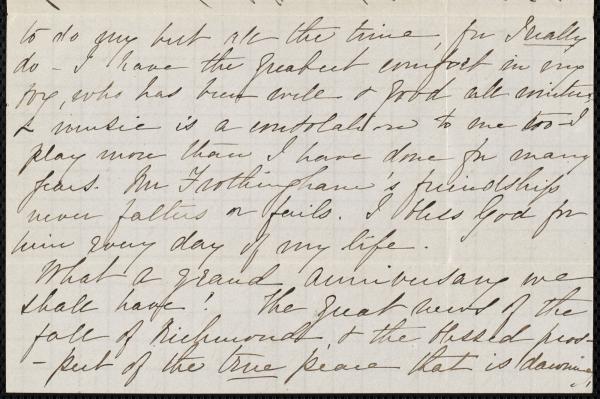 to do my best all the time, for I really
do - I have the greatest comfort in my
boy, who has been well & good all winter,
& music is a consolation to me too - I
play more than I have done for many
years. Mr Frothingham's friendship
never falters or fails. I bless God for
him every day of my life.
What a grand anniversary we
shall have! The great news of the
fall of Richmond, & the blessed pros-
-pect of the true peace that is dawning,